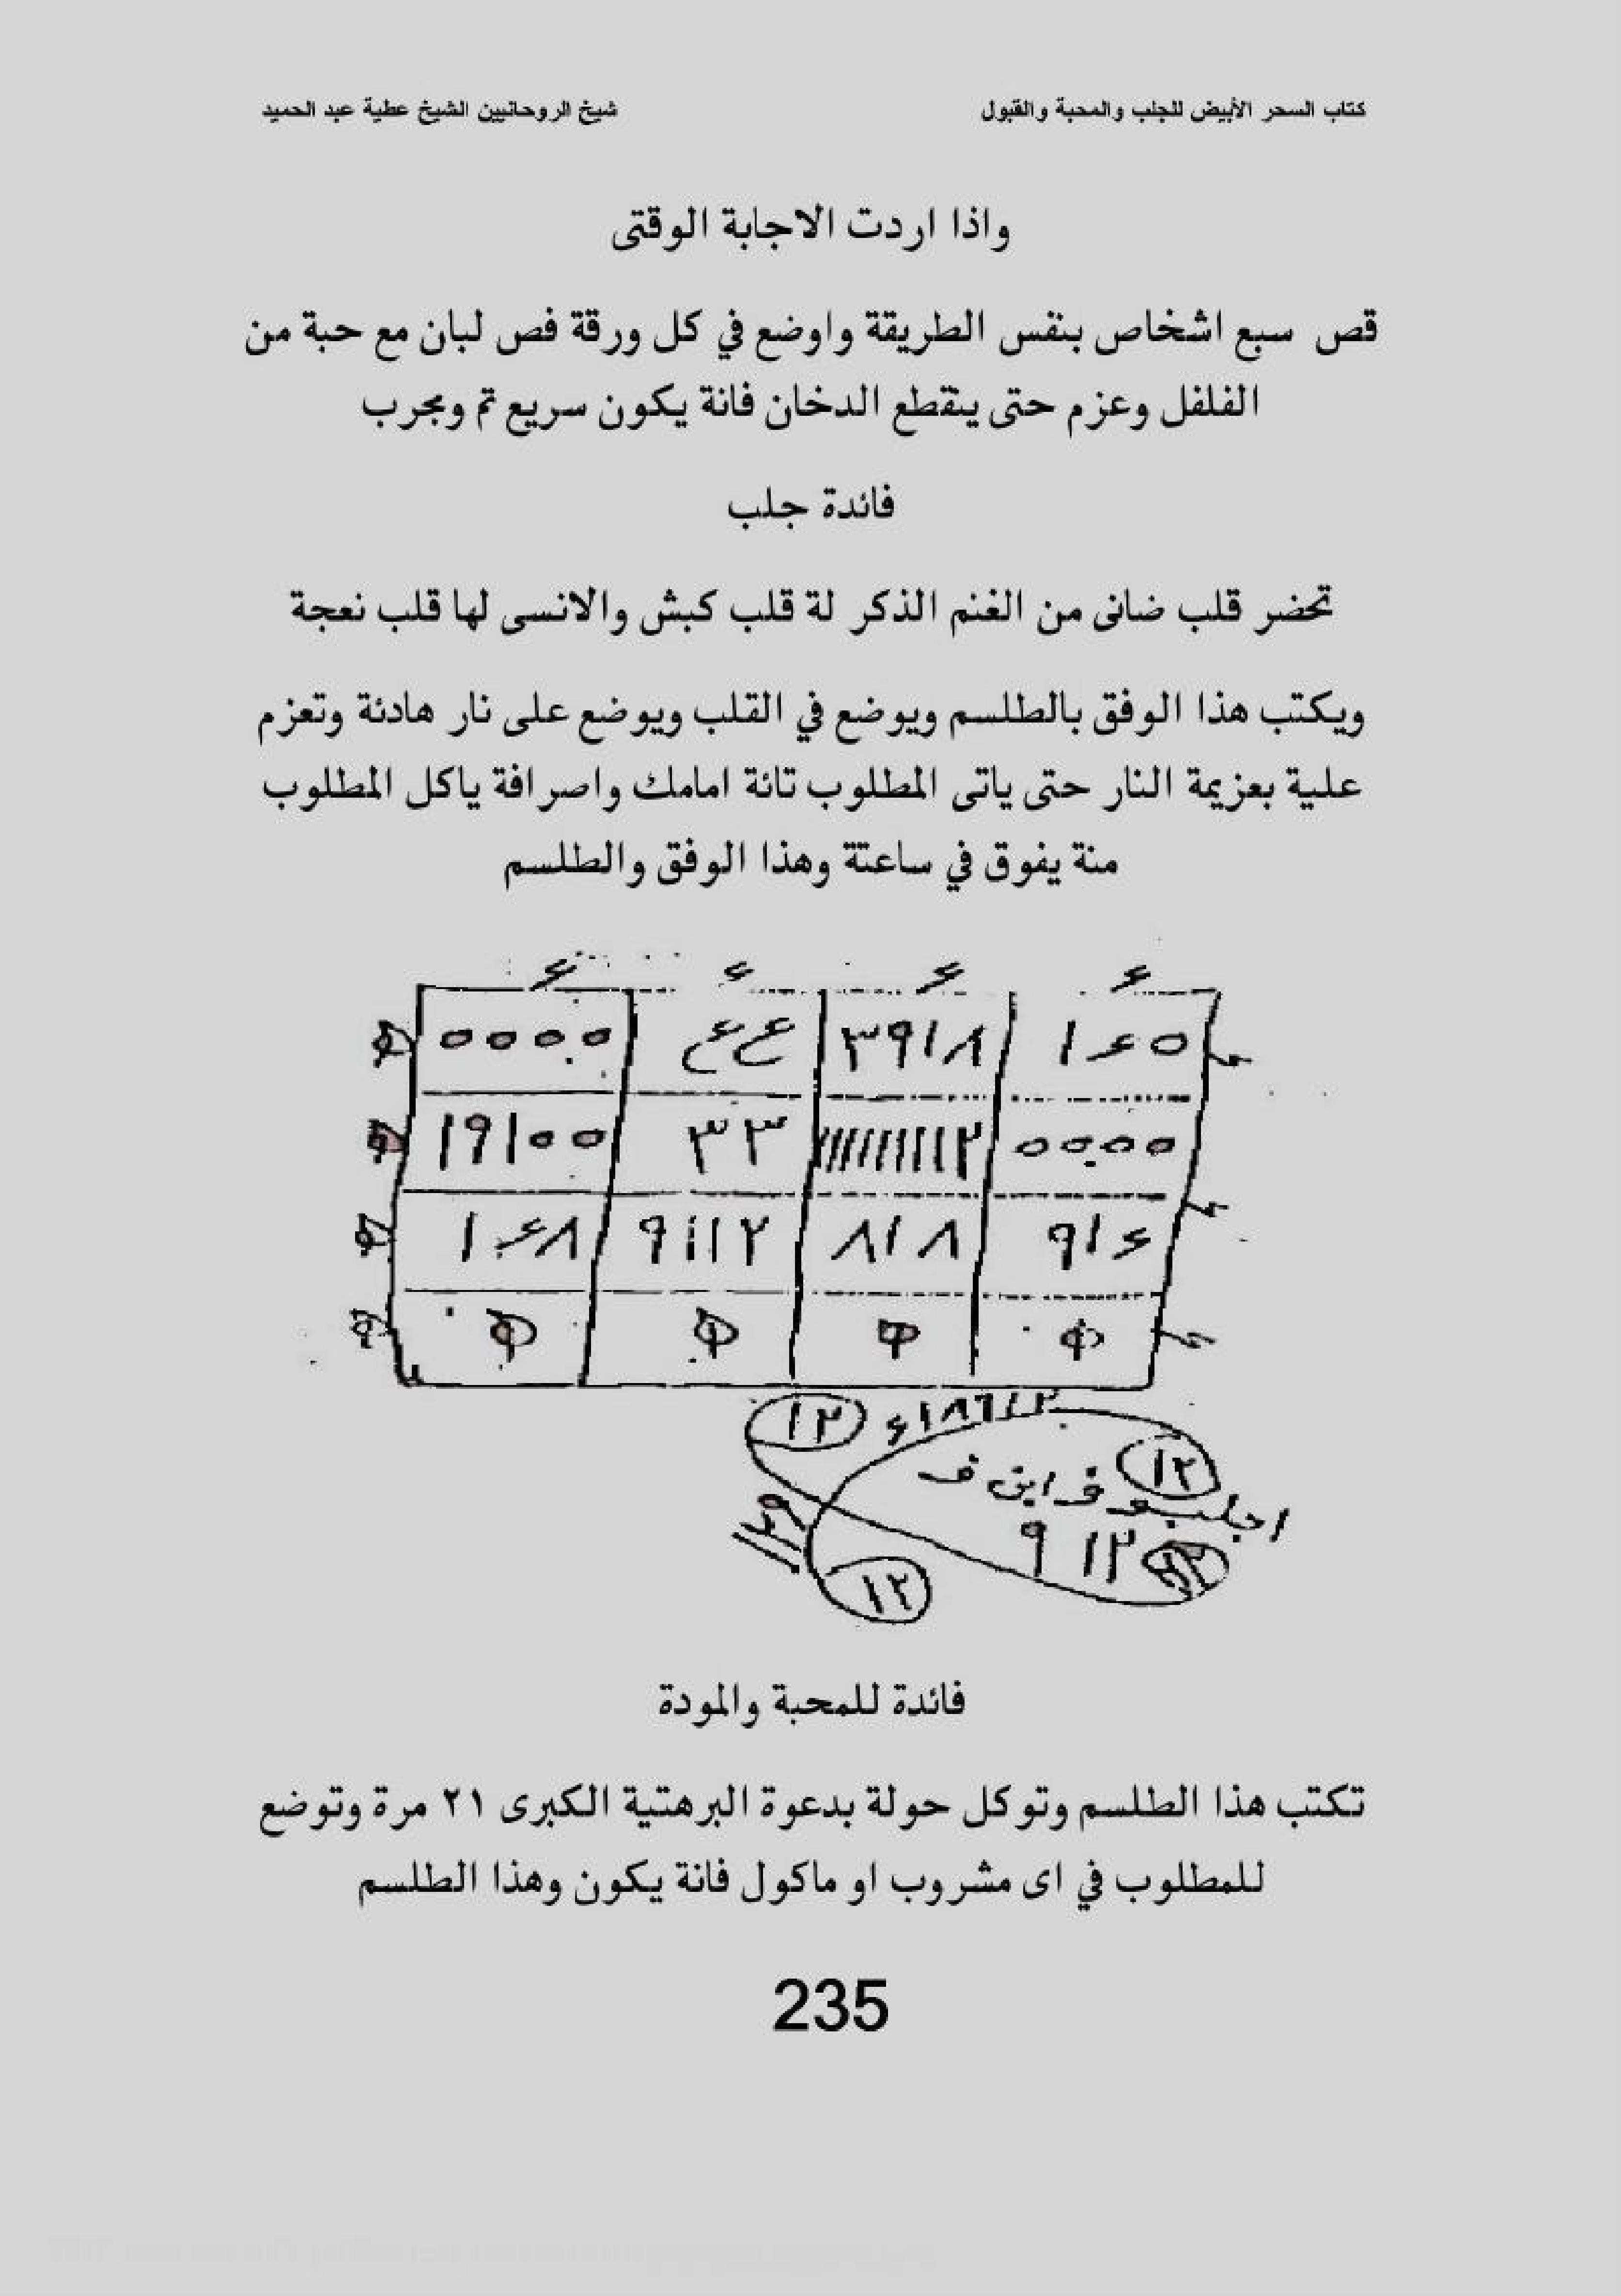 كتاب السحر الأبيض للجلب والمحبة والقبول
شيخ الروحانيين الشيخ عطية عبد الحميد
واذا اردت الاجابة الوقتى
قص سبع اشخاص بنفس الطريقة واوضع في كل ورقة فص لبان مع حبة من
الفلفل وعزم حتى ينقطع الدخان فانة يكون سريع تم ومجرب
فائدة جلب
تحضر قلب ضانى من الغنم الذكر لة قلب كبش والانسى لها قلب نعجة
ويكتب هذا الوفق بالطلسم ويوضع في القلب ويوضع على نار هادئة وتعزم
علية بعزيمة النار حتى ياتى المطلوب تائة امامك واصرافة ياكل المطلوب
منة يفوق في ساعتة وهذا الوفق والطلسم
١٤٥ ٣٩١٨ ٤ع ٥٥٥٥
٥٥٥٥ ٣٣ ١٩١٥٥
٩١٤ ٨١٨ ٩١١٢ ١٤٨
١٢
١٢
٩١٢
١٢
فائدة للمحبة والمودة
تكتب هذا الطلسم وتوكل حولة بدعوة البرهتية الكبرى ٢١ مرة وتوضع
للمطلوب في اى مشروب او ماكول فانة يكون وهذا الطلسم
235